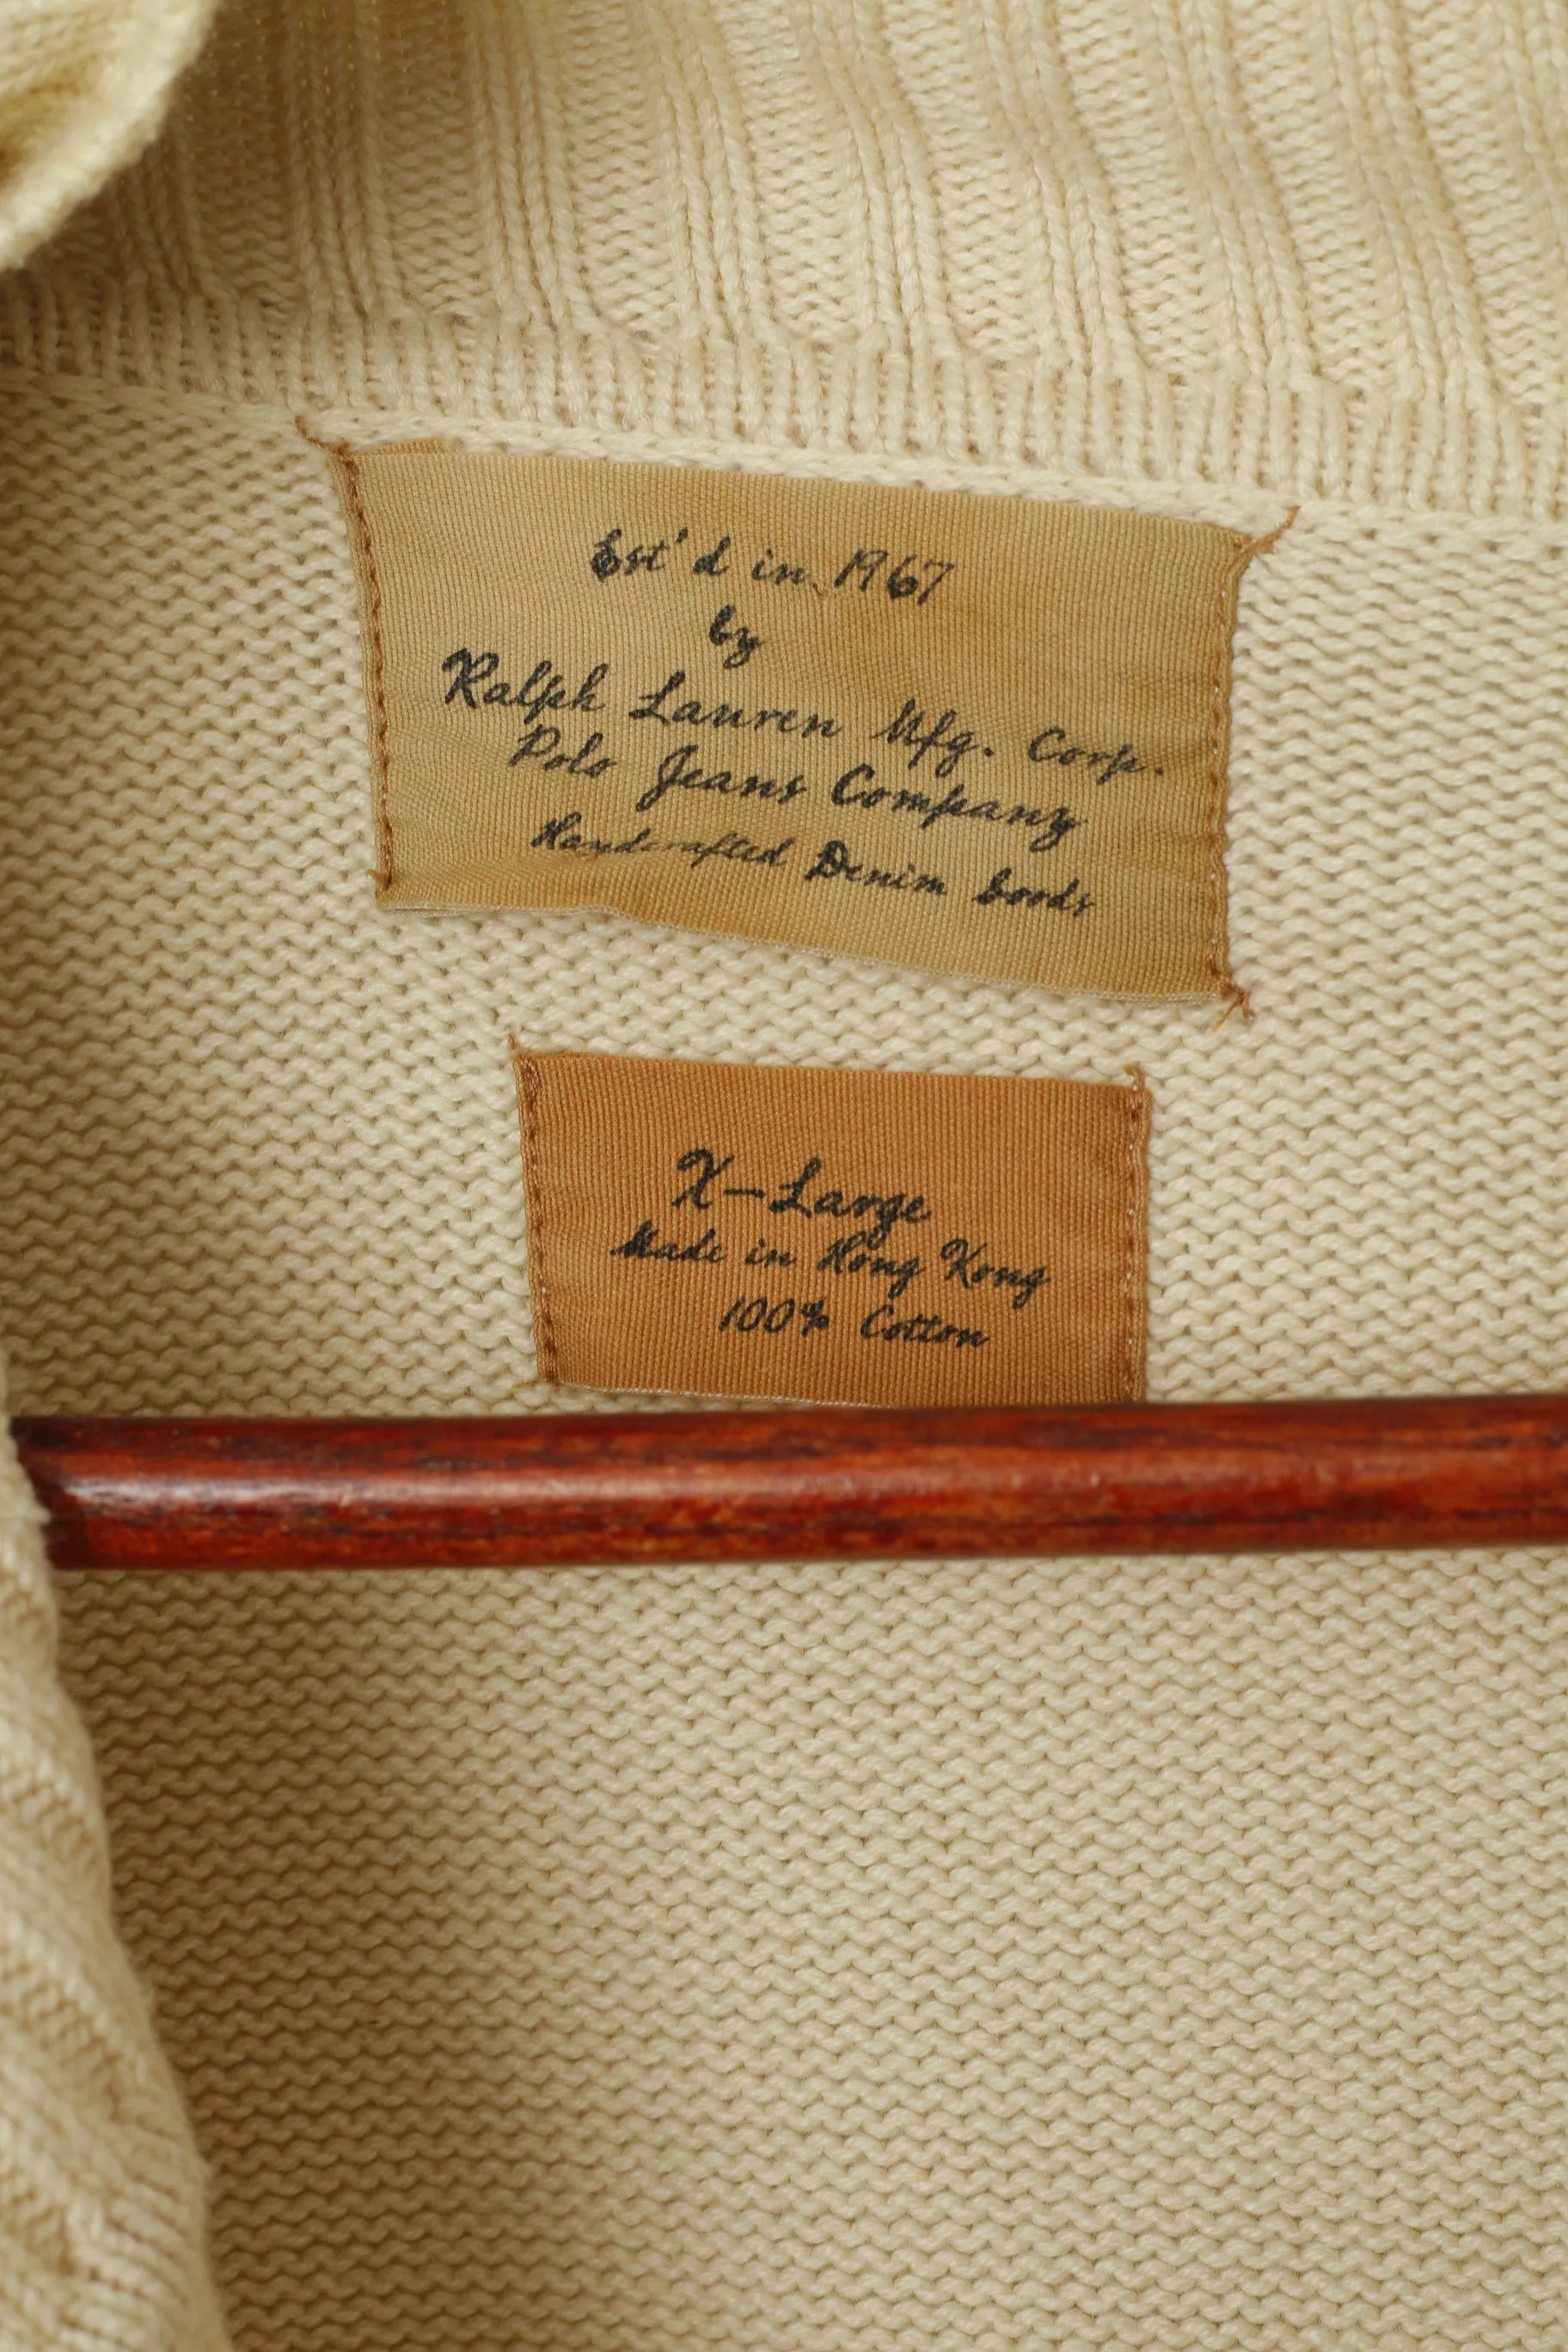 Est'd in 1967
by
Ralph Lauren Mfg. Corp.
Polo Jeans Company
Handcrafted Denim Goods
X-Large
Made in Hong Kong
100% Cotton